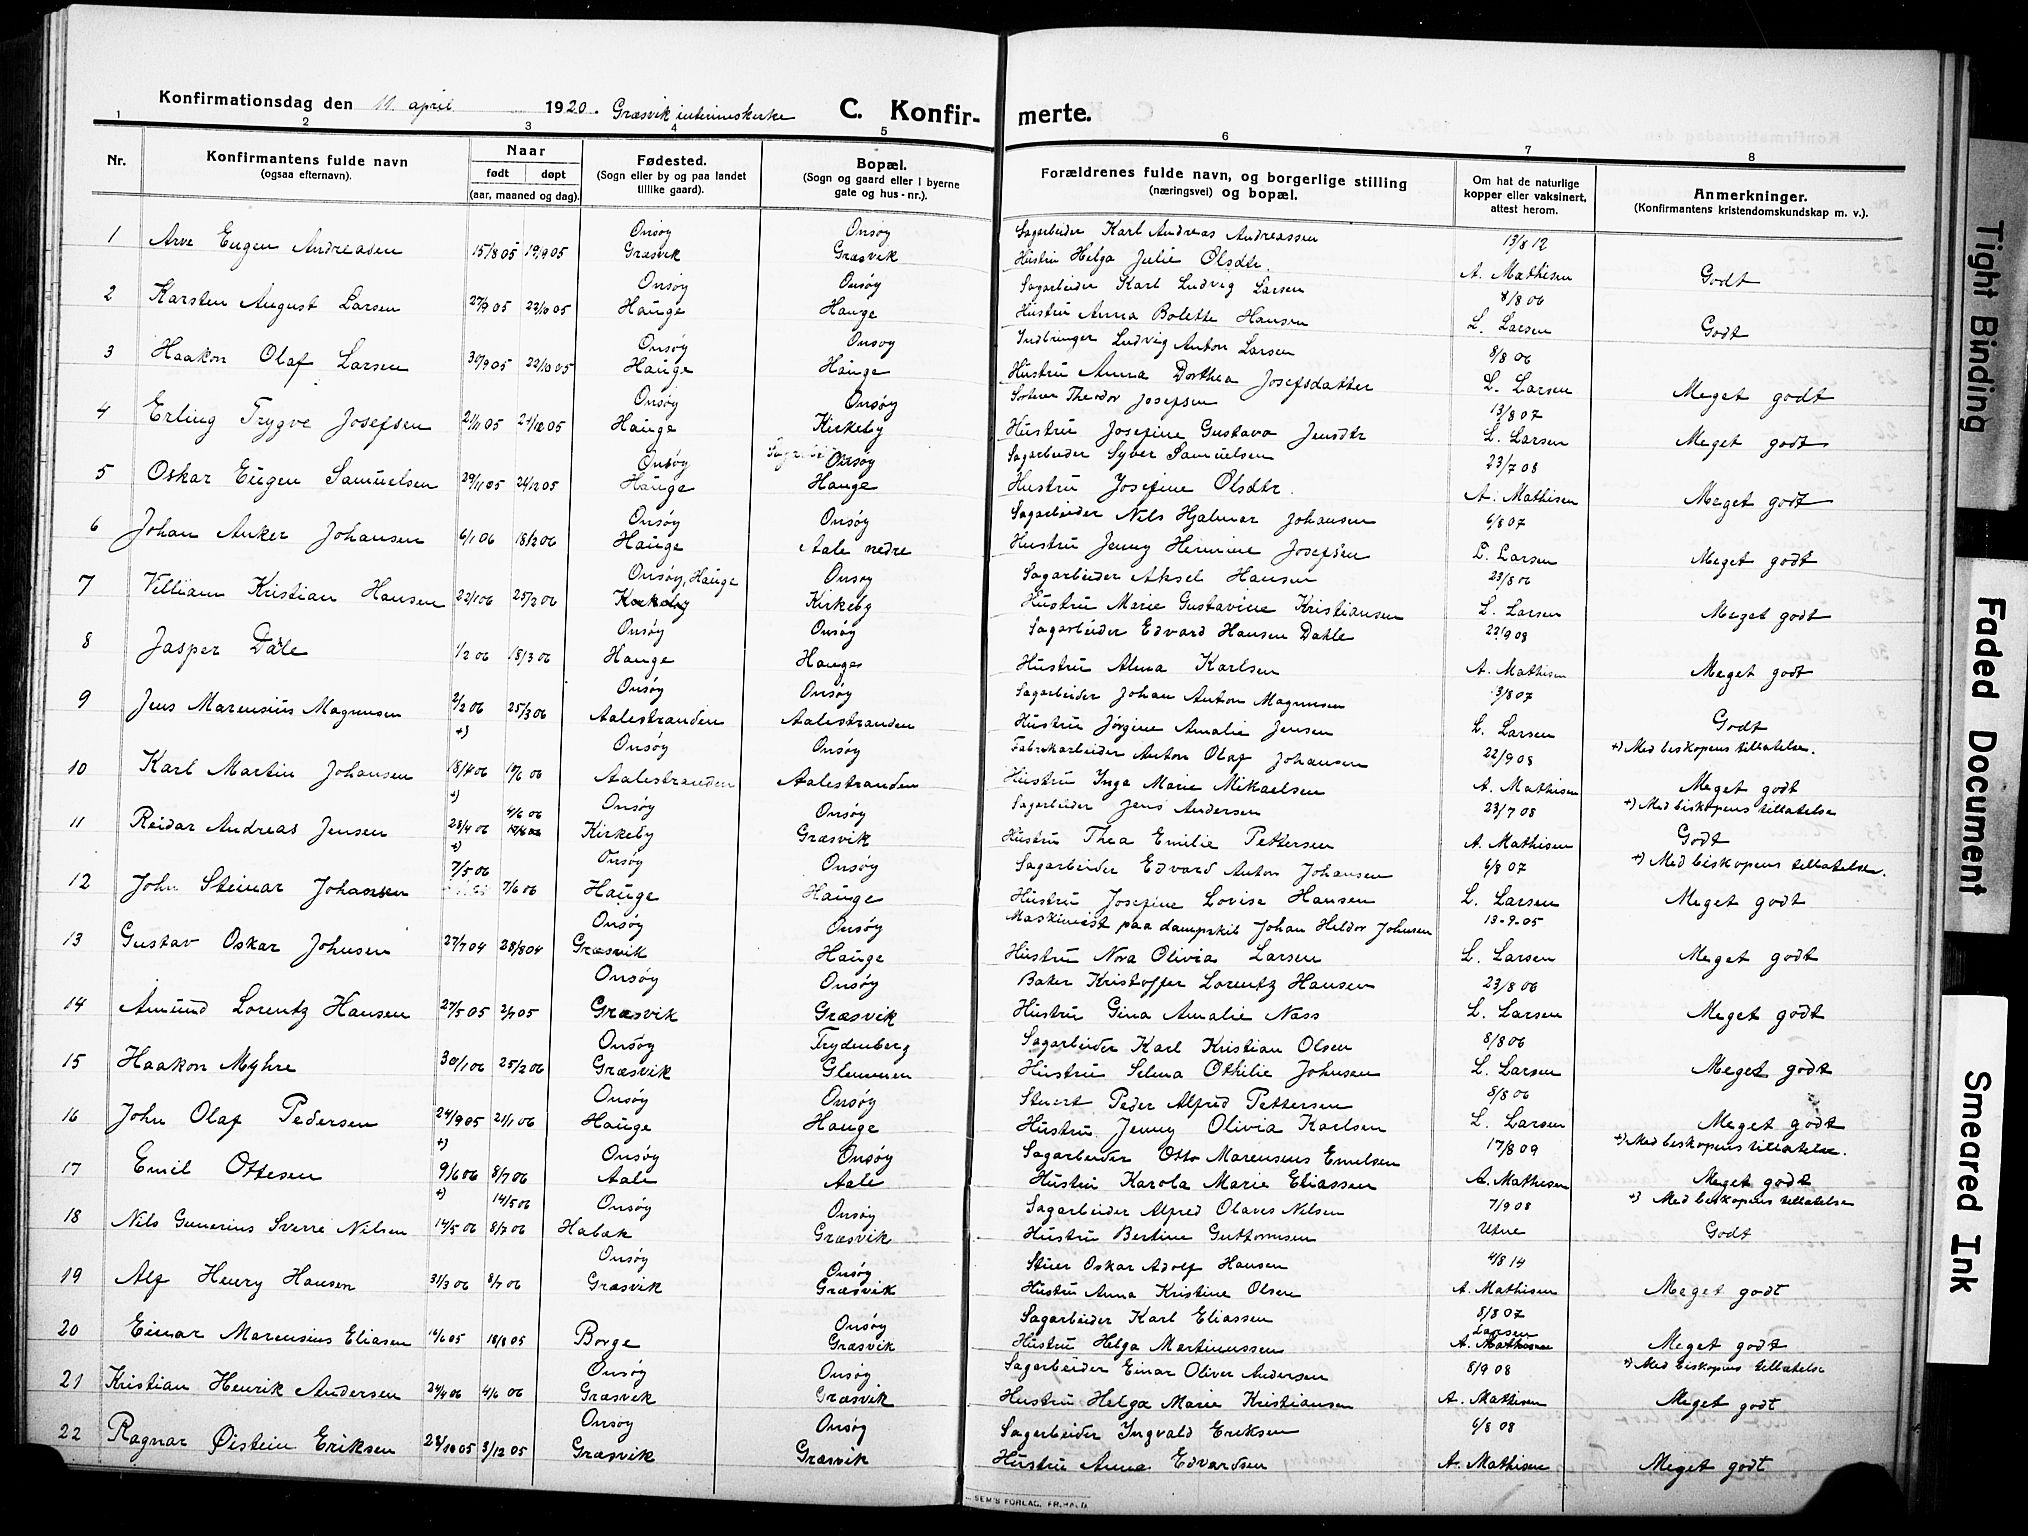 Konfirmationsdag den 11. april 1920. Græsvik interimskirke C. Konfirmerte.
1 2 3 4 5 6 7 8
Nr. Konfirmantens fulde navn (ogsaa efternavn). Naar født døpt (aar, maaned og dag). Fødested. (Sogn eller by og paa landet tillike gaard). Bopæl. (Sogn og gaard eller i byerne gate og hus-nr.). Forældrenes fulde navn, og borgerlige stilling (næringsvei) og bopæl. Om hat de naturlige kopper eller vaksinert, attest herom. Anmerkninger. (Konfirmantens kristendomskundskap m. v.).
1 Arve Eugen Andreasen 15/8 05 17/9 05 Onsøy Græsvik Onsøy Græsvik Sagarbeider Karl Andreas Andreassen Hustru Helga Julie Olsdtr. 13/8 12 A. Mathisen Godt
2 Karsten August Larsen 27/9 05 22/10 05 Onsøy Hauge Onsøy Hauge Sagarbeider Karl Ludvig Larsen Hustru Anna Bolette Hansen 8/8 06 L. Larsen Godt
3 Haakon Olaf Larsen 30/9 05 22/10 05 Onsøy Hauge Onsøy Hauge Indbringer Ludvig Anton Larsen Hustru Anna Dorthea Josefsdatter 8/8 06 L. Larsen Meget godt
4 Erling Trygve Josefsen 21/11 05 21/12 05 Onsøy Hauge Onsøy Kirkeby Sorterer Theodor Josefsen Hustru Josefine Gustava Jensdtr 13/8 07 L. Larsen Meget godt
5 Oskar Eugen Samuelsen 29/11 05 24/12 05 Onsøy Hauge Onsøy Hauge Sagarbeider Syver Samuelsen Hustru Josefine Olsdtr. 23/7 08 A. Mathisen Meget godt
6 Johan Anker Johansen 6/1 06 18/2 06 Onsøy Hauge Onsøy Aale nedre Sagarbeider Nils Hjalmar Johansen Hustru Jenny Hermine Josefsen 6/8 07 L. Larsen Meget godt
7 Villiam Kristian Hansen 22/1 06 25/2 06 Onsøy, Hauge Kirkeby Onsøy Kirkeby Sagarbeider Aksel Hansen Hustru Marie Gustavine Kristiansen 23/8 06 L. Larsen Meget godt
8 Jasper Dale 1/2 06 18/3 06 Onsøy Hauge Onsøy Hauge Sagarbeider Edvard Hansen Dahle Hustru Alma Karlsen 22/9 08 A. Mathisen Meget godt
9 Jens Marensius Magnusen 2/2 06 25/3 06 Onsøy Aalestranden Onsøy Aalestranden Sagarbeider Johan Anton Magnusen Hustru Jørgine Amalie Jensen 13/8 07 L. Larsen Godt
10 Karl Martin Johansen +) 18/4 06 10/6 06 Onsøy Aalestranden Onsøy Aalestranden Fabrikarbeider Anton Olaf Johansen Hustru Inga Marie Mikaelsen 22/9 08 A. Mathisen +) Med biskopens tillatelse. Meget godt
11 Reidar Andreas Jensen +) 28/4 06 4/6 06 Onsøy Kirkeby Onsøy Græsvik Sagarbeider Jens Andersen Hustru Thea Emilie Pettersen 23/7 08 A. Mathisen +) Med biskopens tillatelse Godt
12 John Steinar Johansen +) 7/5 06 7/6 06 Onsøy Hauge Onsøy Hauge Sagarbeider Edvard Anton Johansen Hustru Josefine Lovise Hansen 6/8 07 L. Larsen +) Med biskopens tillatelse. Meget godt
13 Gustav Oskar Johnsen 27/7 04 28/8 04 Onsøy Græsvik Onsøy Hauge Maskinist paa dampskib Johan Heldor Johnsen Hustru Nora Olivia Larsen 13-9-05 L. Larsen Meget godt
14 Amund Lorentz Hansen 27/5 05 2/7 05 Onsøy Græsvik Onsøy Græsvik Baker Kristoffer Lorentz Hansen Hustru Gina Amalie Næss 23/8 06 L. Larsen Meget godt
15 Haakon Myhre 30/1 06 25/2 06 Onsøy Græsvik Trydenberg Glemmen Sagarbeider Karl Kristian Olsen Hustru Selma Othilie Johnsen 8/8 06 L. Larsen Meget godt
16 John Olaf Pedersen 24/9 05 21/1 06 Onsøy Hauge Onsøy Hauge Stuert Peder Alfred Pettersen Hustru Jenny Olivia Karlsen 8/8 06 L. Larsen Meget godt
17 Emil Ottesen +) 9/6 06 8/7 06 Onsøy Aale Onsøy Aale Sagarbeider Otto Marensius Emilsen Hustru Karola Marie Eliassen 17/8 09 A. Mathisen +) Med biskopens tillatelse. Meget godt
18 Nils Gunerius Sverre Nilsen +) 14/5 06 14/5 06 8/7 06 Onsøy Habak Onsøy Græsvik Sagarbeider Alfred Olaves Nilsen Hustru Bertine Guttormsen 7/9 08 Utne +) Med biskopens tillatelse Godt
19 Alf Henry Hansen 31/3 06 8/7 06 Onsøy Græsvik Onsøy Græsvik Stuer Oskar Adolf Hansen Hustru Anna Kristine Olsen 4/8 14 A. Mathisen Meget godt
20 Einar Marensius Eliasen 16/6 05 18/8 05 Borge Onsøy Græsvik Sagarbeider Karl Eliassen Hustru Helga Martinussen 8/8 07 Larsen A. Mathisen Meget godt
21 Kristian Henrik Andersen 24/4 06 4/6 06 Onsøy Græsvik Onsøy Græsvik Sagarbeider Einar Oliver Andersen Hustru Helga Marie Kristiansen 8/9 08 A. Mathisen +) Med biskopens tillatelse Meget godt
22 Ragnar Øistein Eriksen 28/10 05 3/12 05 Onsøy Græsvik Onsøy Græsvik Sagarbeider Ingvald Eriksen Hustru Anna Edvardsen 6/8 08 A. Mathisen Meget godt
SEM'S FORLAG, FR.HALD.
Tight Binding
Faded Document
Smeared Ink